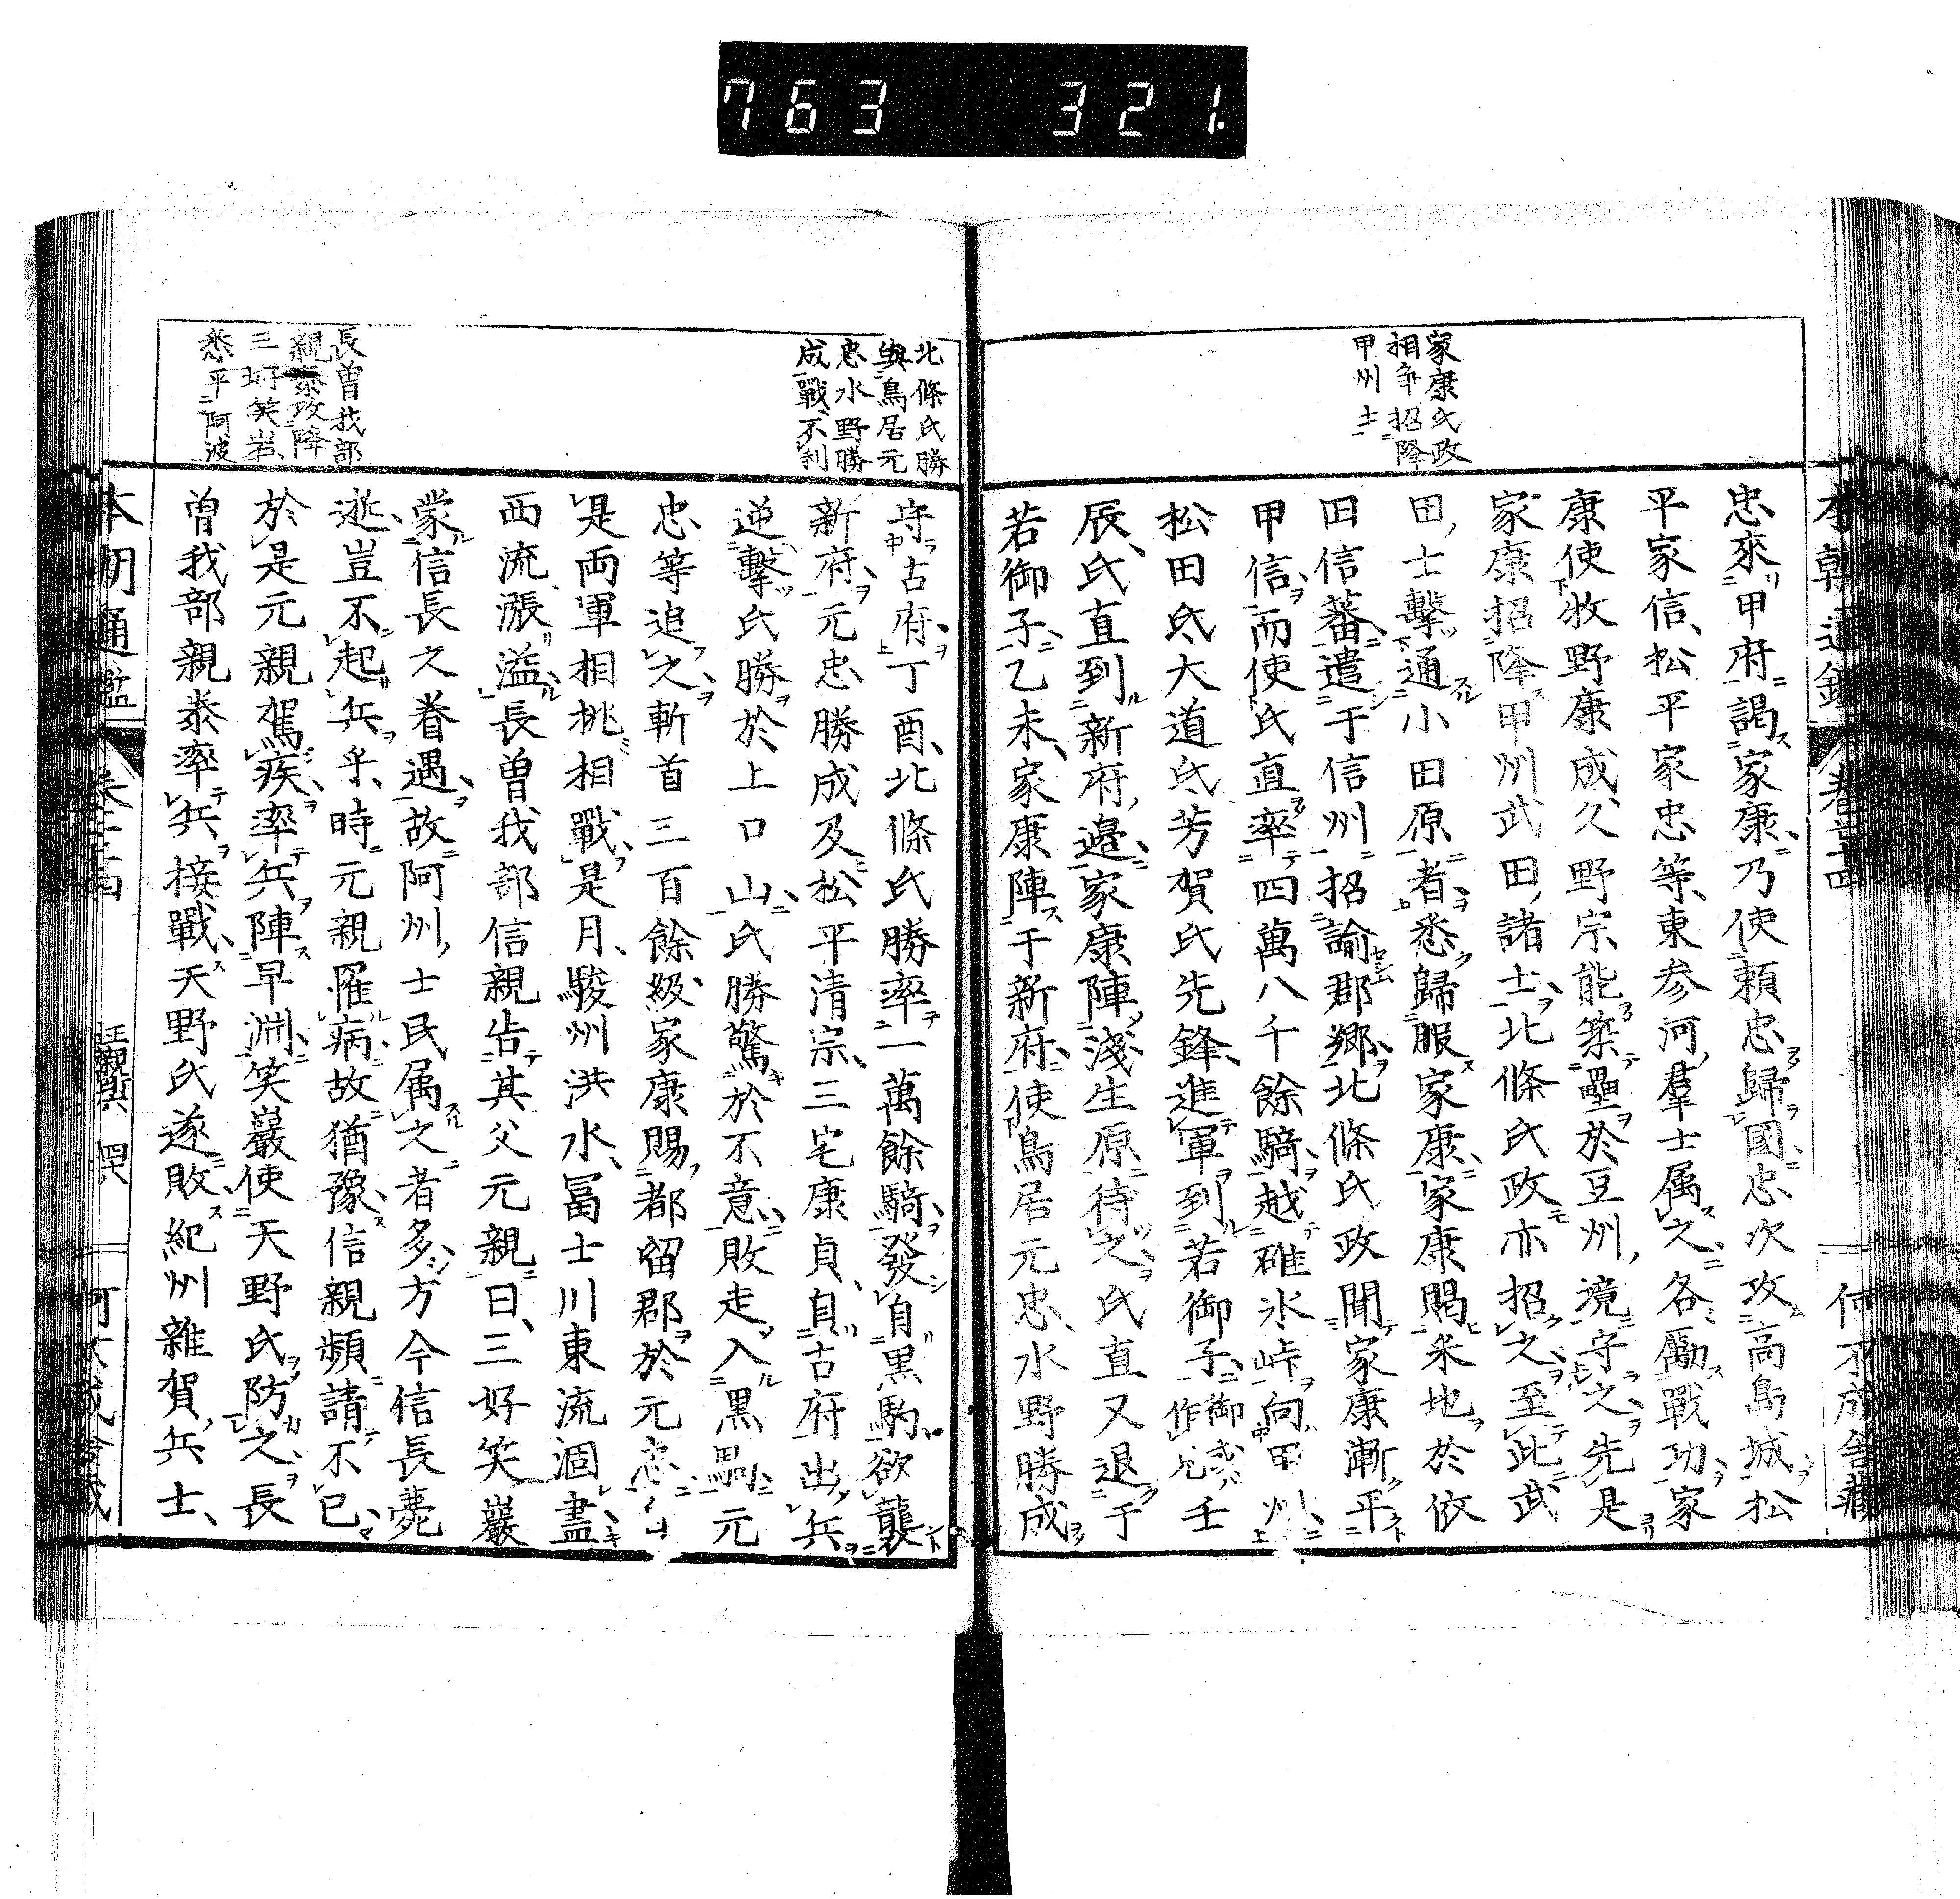 763 321.
家康氏政
相争招降
甲州士
忠來甲府謁家康乃使頼忠歸國忠次攻高島城松
平家信松平家忠等東参河羣士属之各勵戰功家
康使牧野康成久野宗能築壘於豆州境守之先是
家康招降甲州武田諸士北條氏政亦招之至此武
田士擊通小田原者悉歸服家康家康賜采地於依
田信蕃遣于信州招諭郡郷北條氏政聞家康漸平
甲信而使氏直率四萬八千餘騎越碓氷峠向甲州
松田氏大道氏芳賀氏先鋒進軍到若御子御或作兒壬
辰氏直到新府邉家康陣淺生原待之氏直又退于
若御子乙未家康陣于新府使鳥居元忠水野勝成
北條氏勝
與鳥居元
忠水野勝
成戰不利
長曽我部
親泰攻降
三好笑岩
悉平阿波
守古府丁酉北條氏勝率一萬餘騎發自黒駒欲襲
新府元忠勝成及松平清宗三宅康貞自古府出兵
逆擊氏勝於上口山氏勝驚於不意敗走入黒駒元
忠等追之斬首三百餘級家康賜都留郡於元忠
是両軍相挑相戰是月駿州洪水冨士川東流涸盡
西流漲溢長曽我部信親告其父元親曰三好笑巖
蒙信長之眷遇故阿州士民属之者多方今信長薨
逝豈不起兵乎時元親罹病故猶豫信親頻請不已
於是元親駕疾率兵陣早渊笑巖使天野氏防之長
曽我部親泰率兵接戰天野氏遂敗紀州雜賀兵士
本朝通鑑